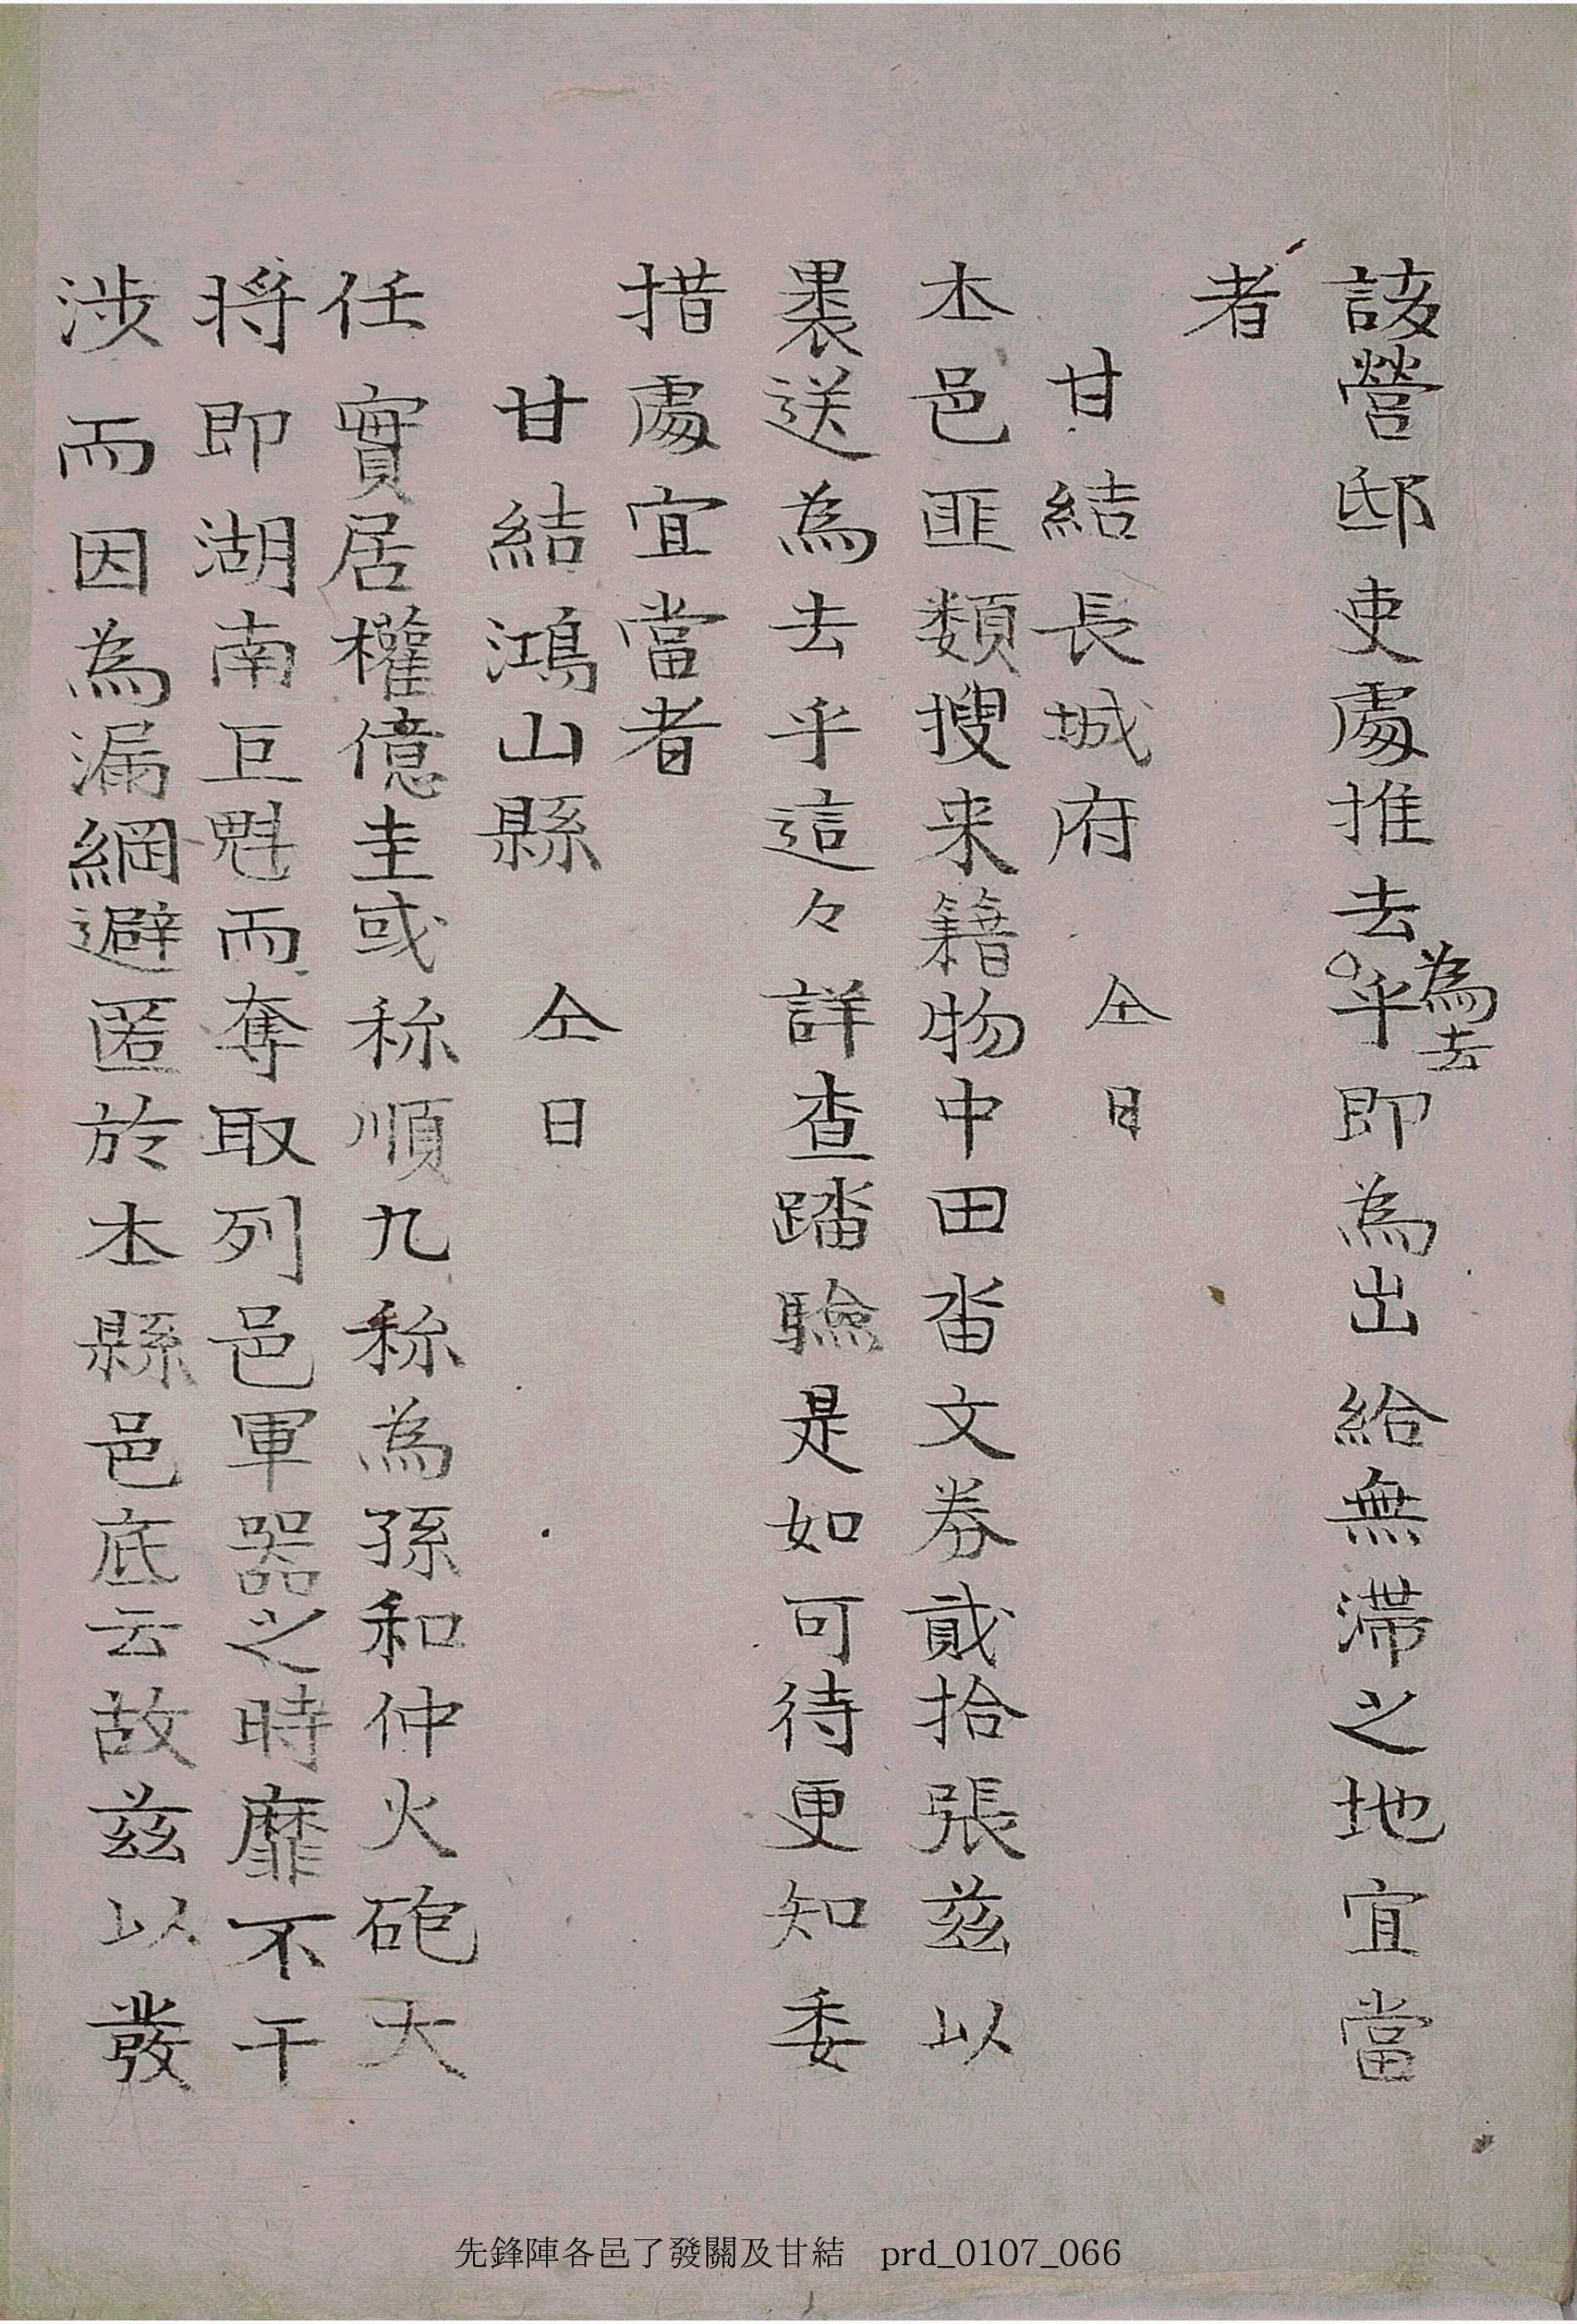 該營邸吏處推去乎即為出給無滯之地宜當
為去
者
甘結長城府 仝日
本邑匪類搜来籍物中田畓文券貳拾張玆以
裹送為去乎這々詳查踏驗是如可待更知委
措處宜當者
甘結鴻山縣 仝日
任實居權億圭或称順九称為孫和仲火砲大
将即湖南巨魁而奪取列邑軍器之時靡不干
涉而因為漏網避匿於本縣邑底云故玆以發
先鋒陣各邑了發關及甘結 prd_0107_066